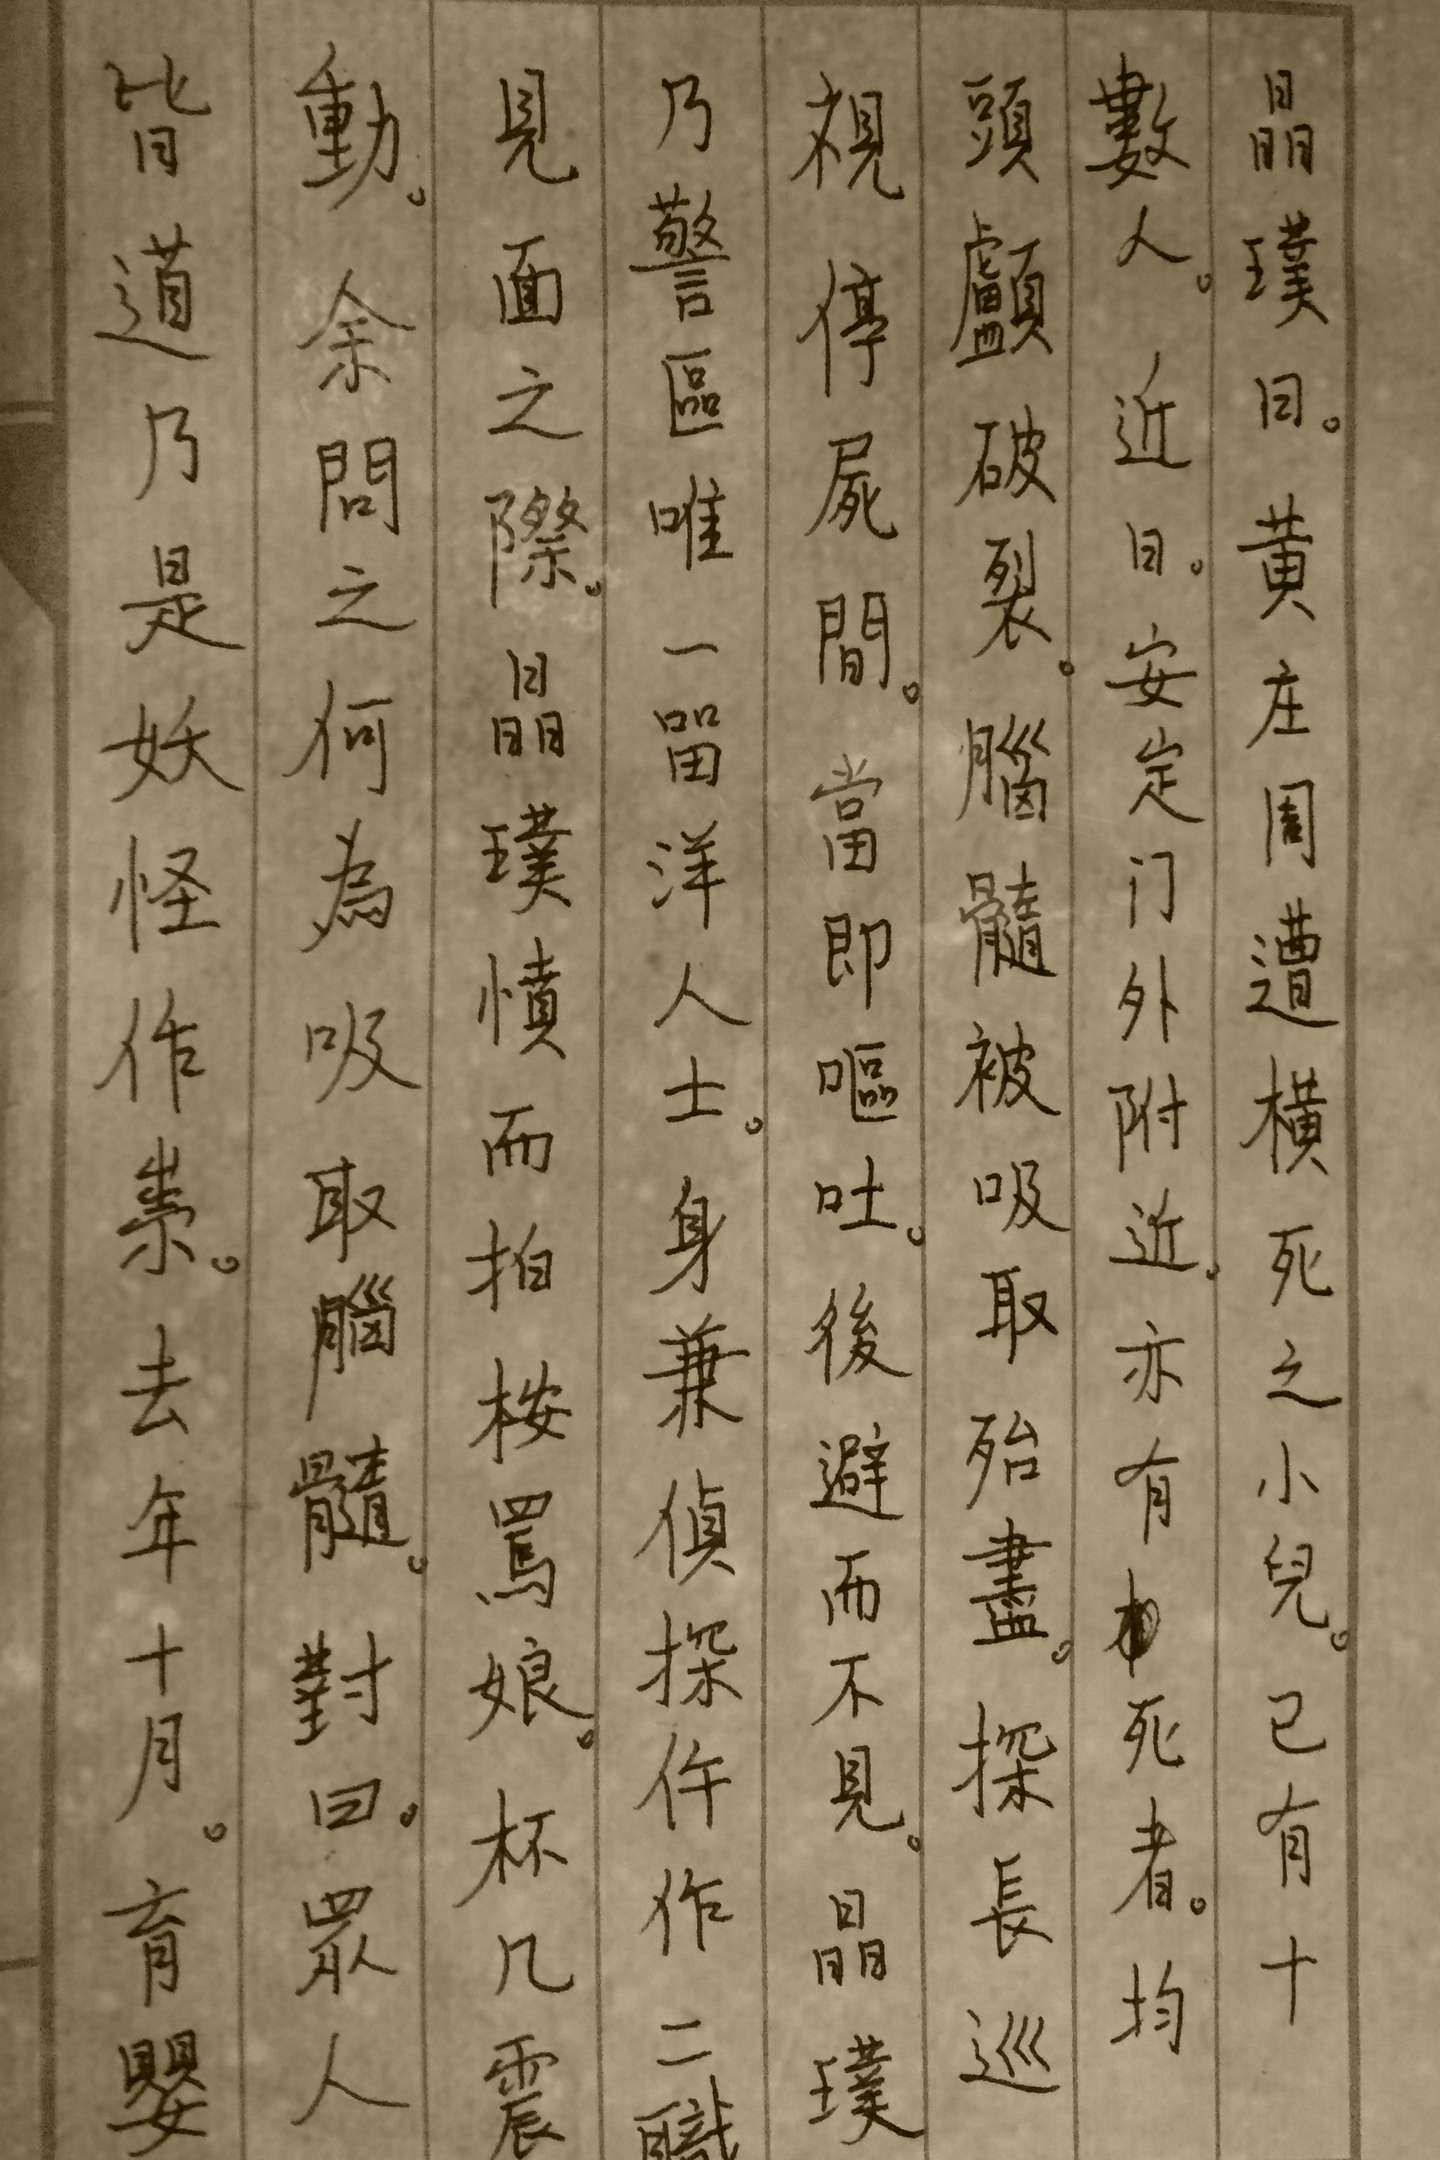 晶璞曰。黃庄周遭橫死之小兒。已有十
數人。近日。安定门外附近。亦有死者。均
頭顱破裂。腦髓被吸取殆盡。探長巡
視停屍間。當即嘔吐。後避而不見。晶璞
乃警區唯一留洋人士。身兼偵探仵作二職
見面之際。晶璞憤而拍桉罵娘。杯几震
動。余問之何為吸取腦髓。對曰。眾人
皆道乃是妖怪作祟。去年十月。育嬰